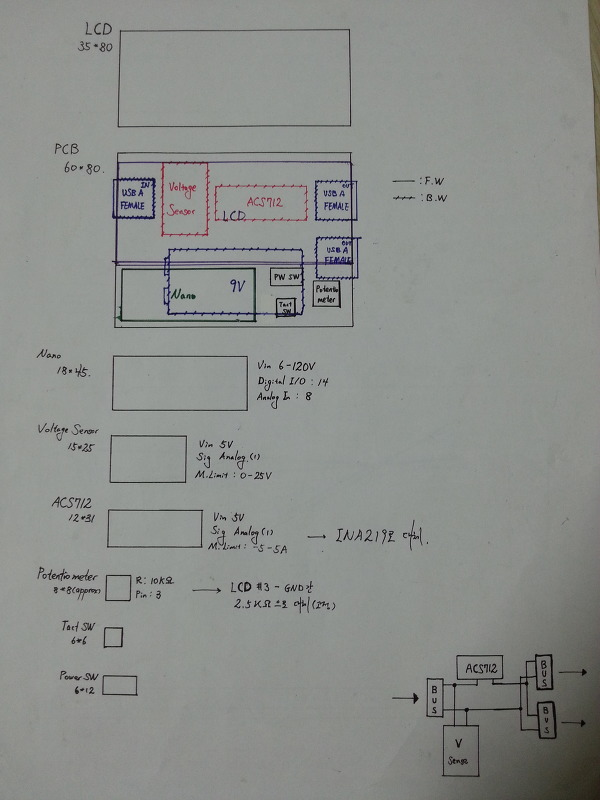 LCD
35*80
PCB
60*80.
IN
USB A
FEMALE
Voltage
Sensor
ACS712
LCD
OUT
USB A
FEMALE
OUT
USB A
FEMALE
Nano
9V
PW SW
Tact
SW
Potentio
meter
: F.W
: B.W
Nano
18*45.
Vin 6-120V
Digital I/O : 14
Analog In : 8
Voltage Sensor
15*25
Vin 5V
Sig Analog (1)
M.Limit : 0-25V
ACS712
12*31
Vin 5V
Sig Analog (1)
M.Limit : -5-5A
→ INA219로 대체.
Potentiometer
8*8(approx)
R: 10KΩ
Pin : 3
→ LCD #3 - GND간
2.5KΩ으로 대체
Tact SW
6*6
Power SW
6*12
ACS712
BUS
BUS
BUS
V
Sense